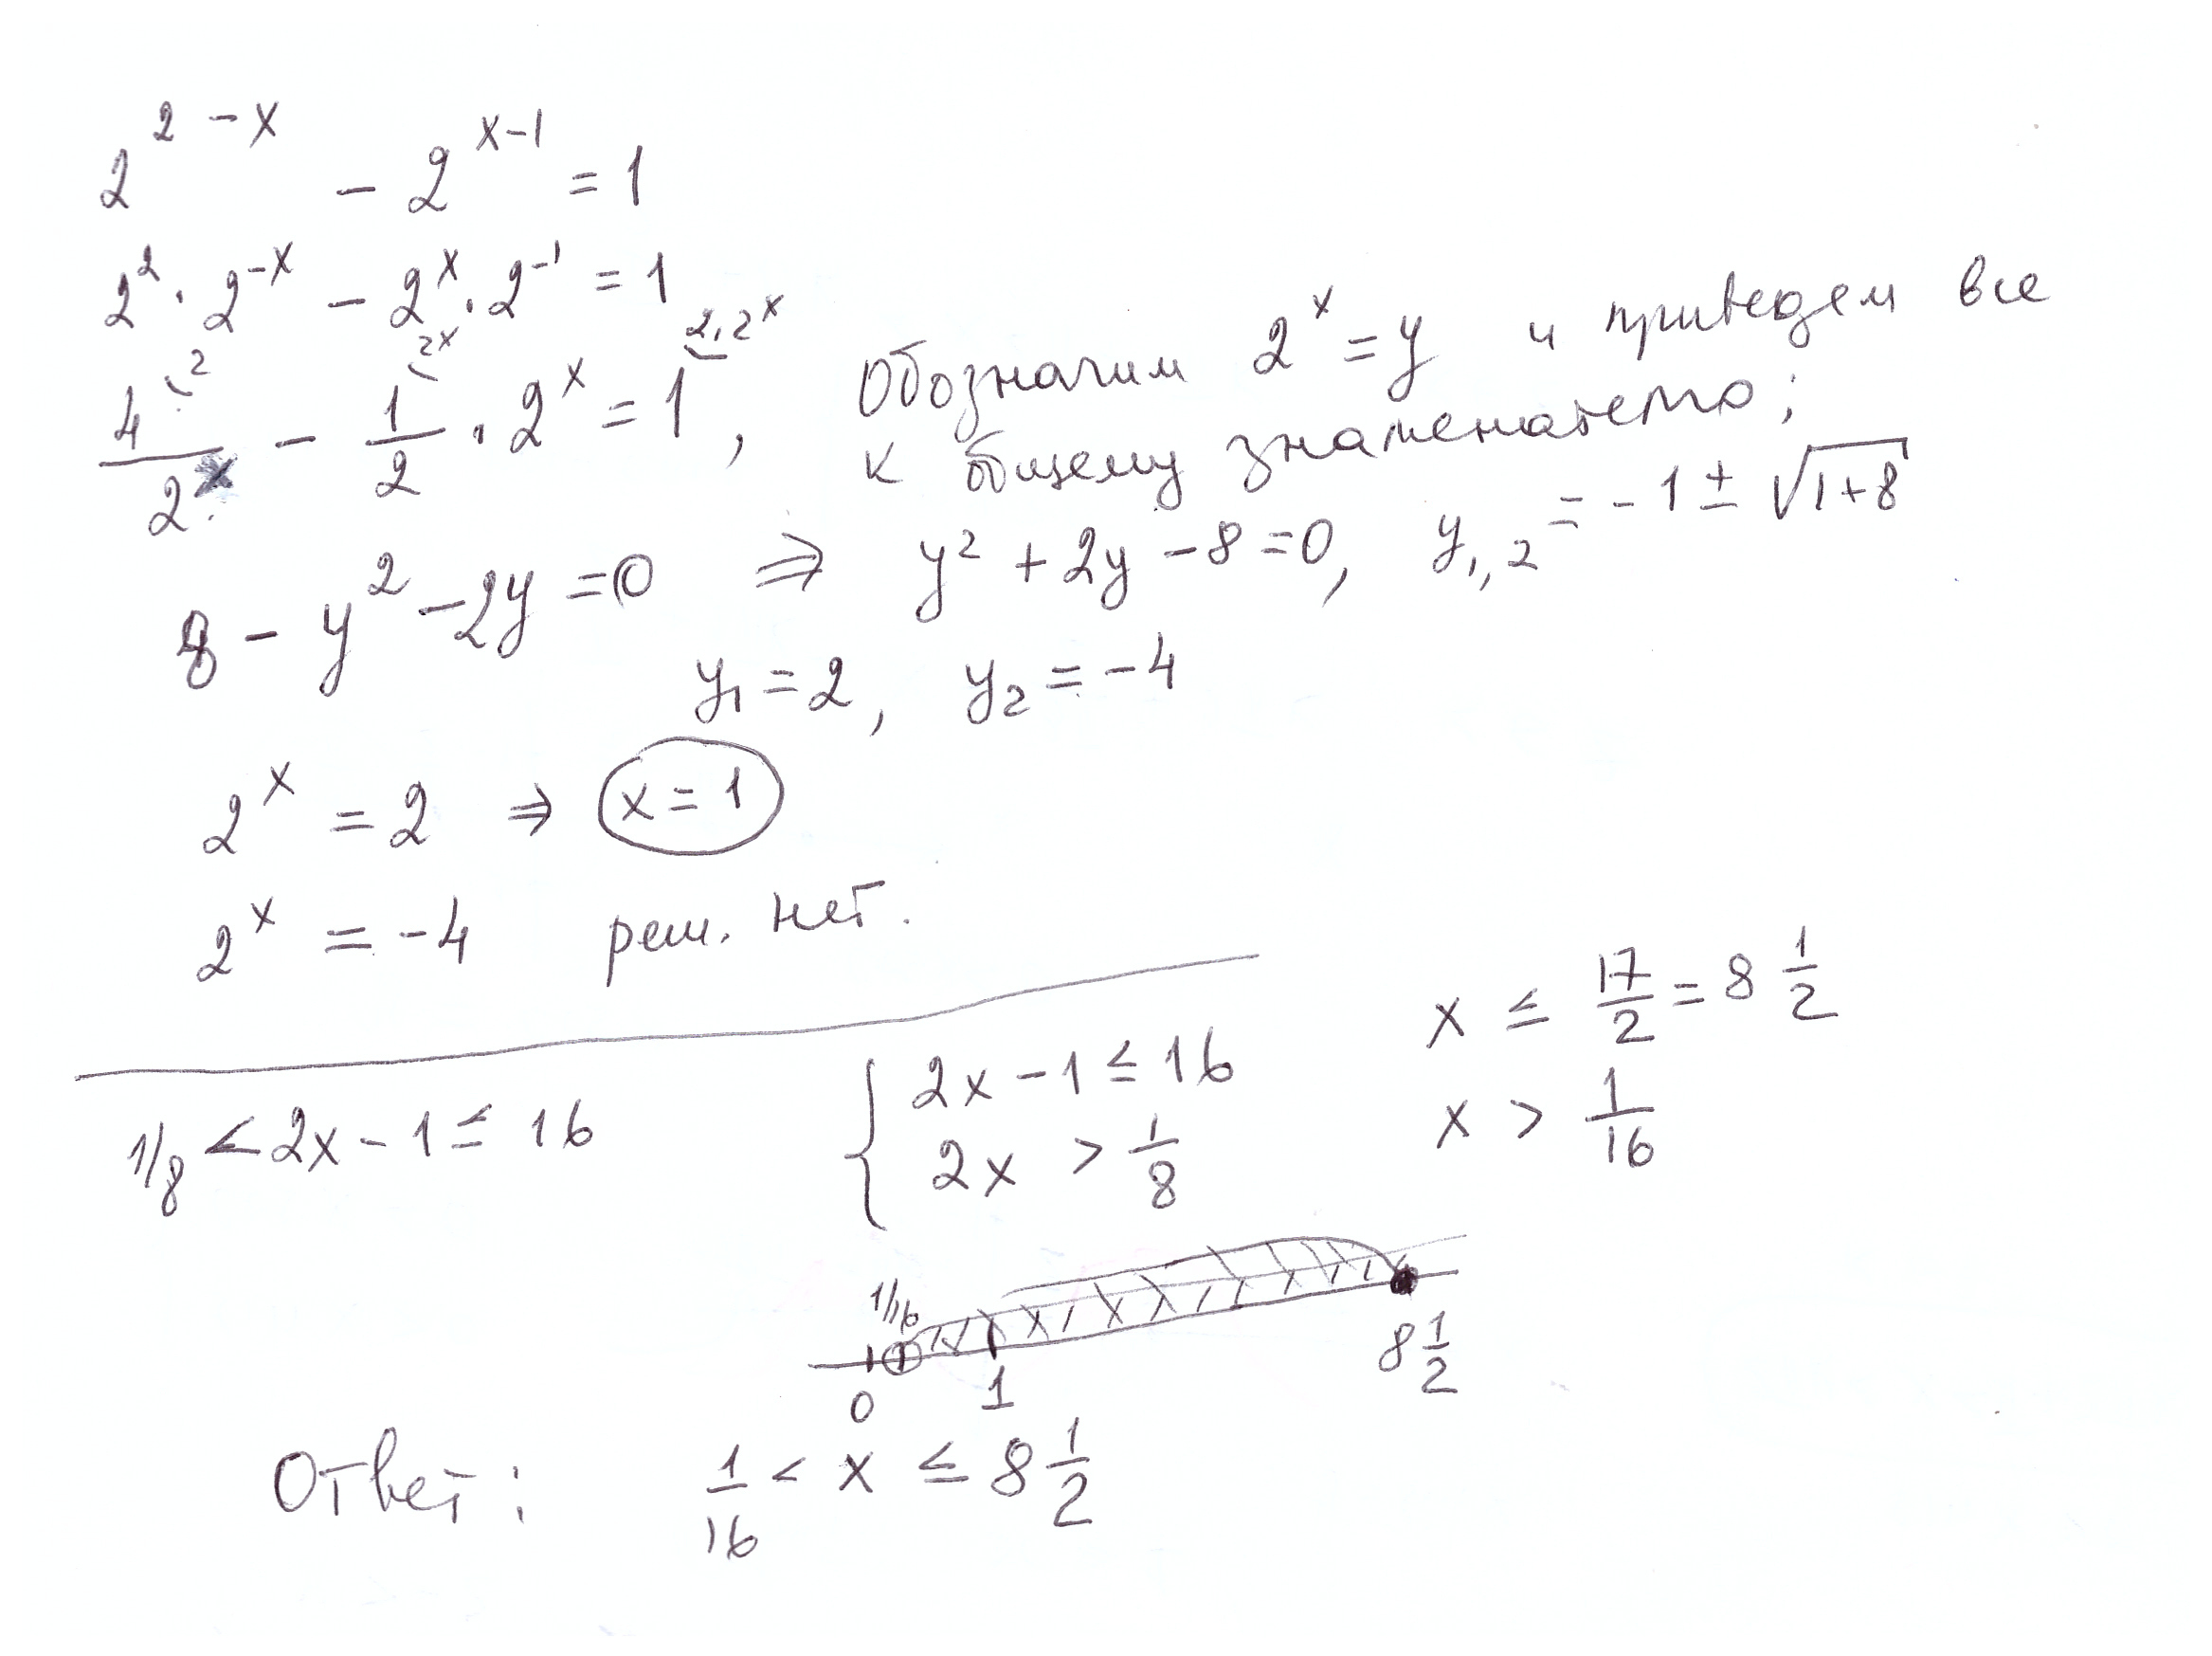 2^{2-x} - 2^{x-1} = 1
2^2 · 2^{-x} - 2^x · 2^{-1} = 1
4^{\2}/2^x - 1^{\2^x}/2 · 2^x = 1^{\2·2^x}, Обозначим 2^x = y и приведем все
к общему знаменателю;
8 - y^2 - 2y = 0 ⇒ y^2 + 2y - 8 = 0, y_{1,2} = -1 ± √(1+8)
y_1 = 2, y_2 = -4
2^x = 2 ⇒ x = 1
2^x = -4 реш. нет.
1/8 < 2x - 1 ≤ 16
{ 2x - 1 ≤ 16
2x > 1/8
x ≤ 17/2 = 8 1/2
x > 1/16
1/16
0 1 8 1/2
Ответ: 1/16 < x ≤ 8 1/2